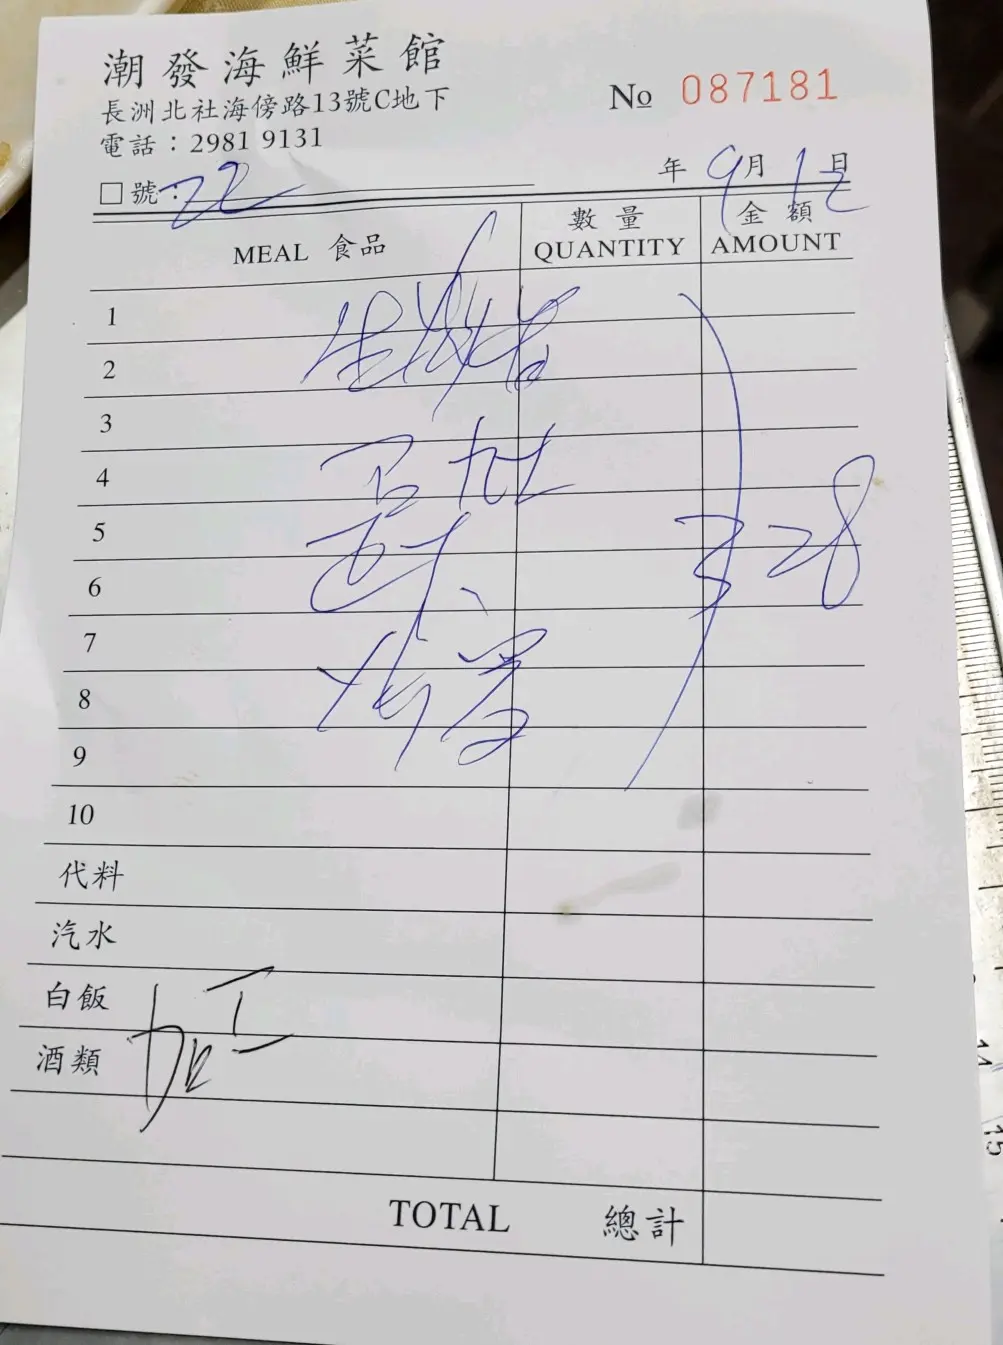 潮發海鮮菜館
長洲北社海傍路13號C地下
電話：2981 9131
No 087181
年 9月 12日
□號：22
MEAL 食品 數量 QUANTITY 金額 AMOUNT
1
2
3
4
5
6
328
7
8
9
10
代料
汽水
白飯
酒類
TOTAL 總計